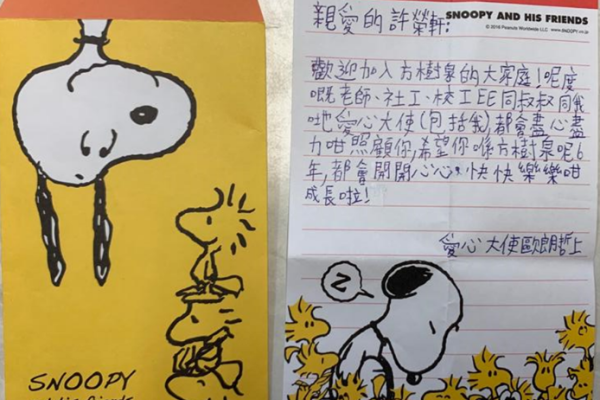 SNOOPY
親愛的許榮軒:
SNOOPY AND HIS FRIENDS
© 2016 Peanuts Worldwide LLC www.SNOOPY.co.jp
歡迎加入方樹泉的大家庭!呢度
嘅老師、社工、校工EE同叔叔同我
哋愛心大使(包括我)都會盡心盡
力咁照顧你,希望你喺方樹泉呢6
年,都會開開心心,快快樂樂咁
成長啦!
愛心大使歐朗哲上
Z